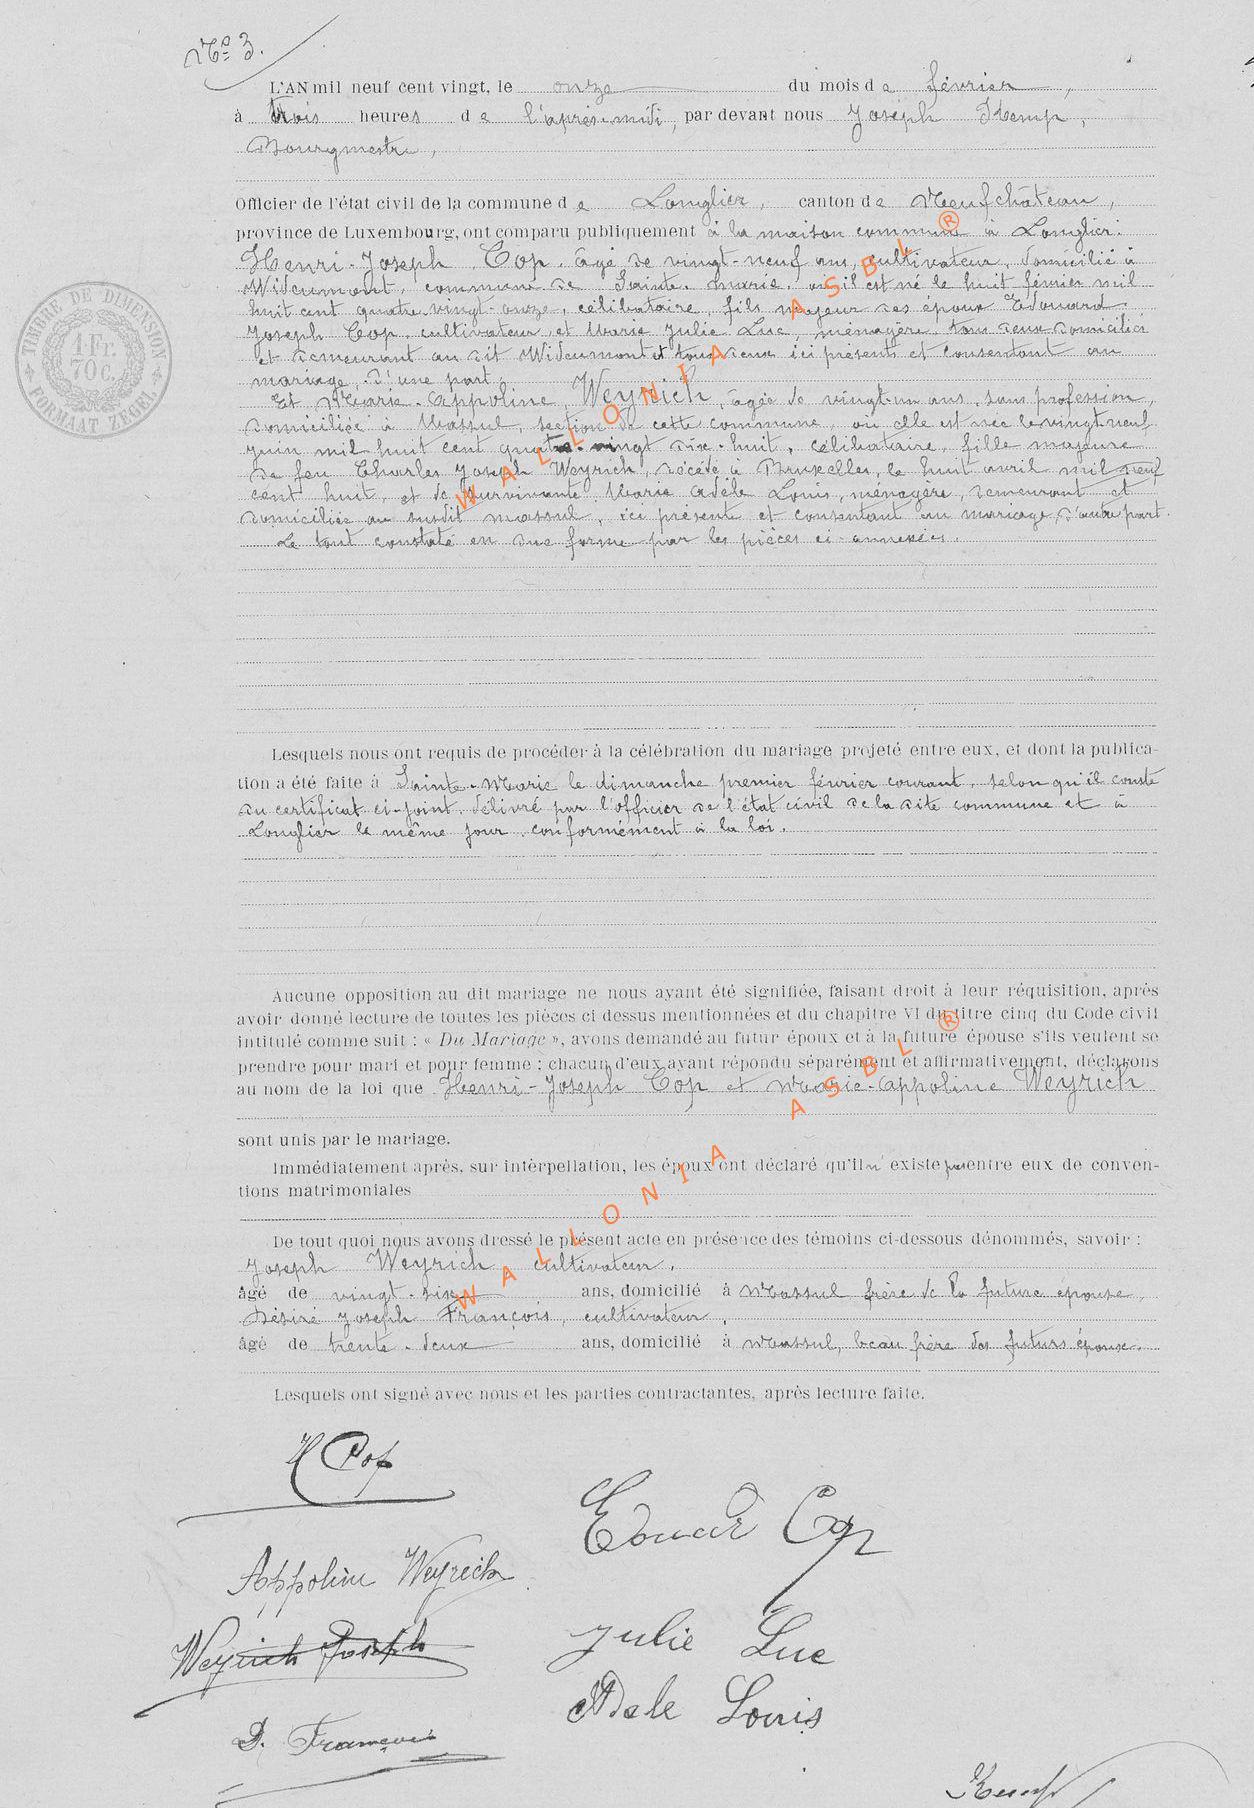 No 3.
L'AN mil neuf cent vingt, le onze du mois de février,
à trois heures de l'après-midi, par devant nous Joseph Kemp,
Bourgmestre,
Officier de l'état civil de la commune de Longlier, canton de Neufchâteau,
province de Luxembourg, ont comparu publiquement à la maison commune à Longlier:
Henri-Joseph Cop, âgé de vingt-neuf ans, cultivateur, domicilié à
Wideumont, commune de Sainte-Marie, où il est né le huit février mil
huit cent quatre vingt-onze, célibataire, fils majeur des époux Edouard
Joseph Cop, cultivateur et Marie Julie Luc, ménagère, tous deux domiciliés
et demeurant au dit Wideumont et tous deux ici présents et consentant au
mariage, d'une part,
Et Marie-Appoline Weyrich, âgée de vingt-un ans, sans profession,
domiciliée à Massul, section de cette commune, où elle est née le vingt-neuf
juin mil huit cent quatre-vingt dix-huit, célibataire, fille majeure
de feu Charles Joseph Weyrich, décédé à Bruxelles, le huit avril mil neuf
cent huit, et de survivante Marie Adèle Louis, ménagère, demeurant et
domiciliée au susdit Massul, ici présente et consentant au mariage, d'autre part.
Le tout constaté en due forme par les pièces ci-annexées.
Lesquels nous ont requis de procéder à la célébration du mariage projeté entre eux, et dont la publica-
tion a été faite à Sainte-Marie le dimanche premier février courant, selon qu'il conste
du certificat ci-joint délivré par l'officier de l'état civil de la dite commune et à
Longlier le même jour, conformément à la loi.
Aucune opposition au dit mariage ne nous ayant été signifiée, faisant droit à leur réquisition, après
avoir donné lecture de toutes les pièces ci dessus mentionnées et du chapitre VI du titre cinq du Code civil
intitulé comme suit : « Du Mariage », avons demandé au futur époux et à la future épouse s'ils veulent se
prendre pour mari et pour femme ; chacun d'eux ayant répondu séparément et affirmativement, déclarons
au nom de la loi que Henri-Joseph Cop et Marie-Appoline Weyrich
sont unis par le mariage.
Immédiatement après, sur interpellation, les époux ont déclaré qu'il n'existe pas entre eux de conven-
tions matrimoniales
De tout quoi nous avons dressé le présent acte en présence des témoins ci-dessous dénommés, savoir :
Joseph Weyrich, cultivateur,
âgé de vingt-six ans, domicilié à Massul frère de la future épouse,
Désiré Joseph François, cultivateur,
âgé de trente-deux ans, domicilié à Massul, beau frère des futurs époux.
Lesquels ont signé avec nous et les parties contractantes, après lecture faite.
H Cop
Edouard Cop
Appoline Weyrich
Julie Luc
Weyrich Joseph
Adele Louis
D. François
Kemp
TIMBRE DE DIMENSION
1 Fr.
70c.
FORMAAT ZEGEL
WALLONIA ASBL ®
WALLONIA ASBL ®